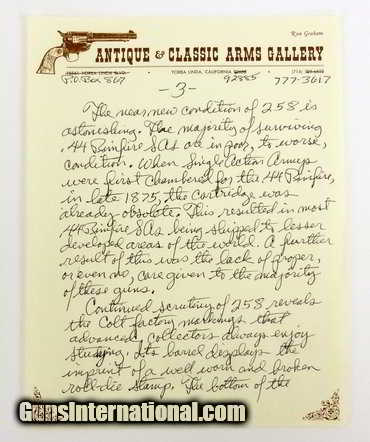 Ron Graham
ANTIQUE & CLASSIC ARMS GALLERY
YORBA LINDA BLVD. YORBA LINDA, CALIFORNIA (714)
P.O. Box 867 92885 777-3617
-3-
The near new condition of 258 is
astonishing. The majority of surviving
.44 Rimfire SAs are in poor, to worse,
condition. When Single Action Armys
were first chambered for the .44 Rimfire,
in late 1875, the cartridge was
already obsolete. This resulted in most
.44 Rimfire SAs being shipped to lesser
developed areas of the world. A further
result of this was the lack of proper,
or even no, care given to the majority
of these guns.
Continued scrutiny of 258 reveals
the Colt factory markings that
advanced collectors always enjoy
studying. Its barrel displays the
imprint of a well worn and broken
roll die stamp. The bottom of the
GunsInternational.com